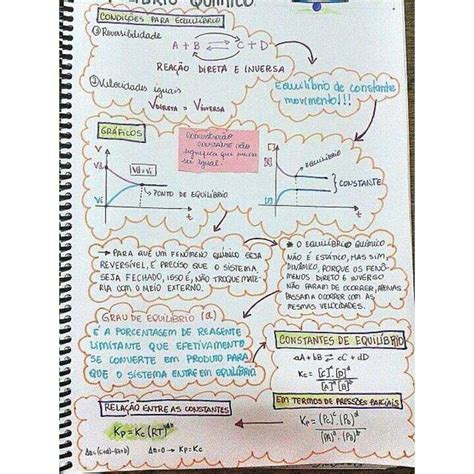 QUÍMICO
CONDIÇÕES PARA EQUILÍBRIO
① Reversibilidade
A + B ⇄ C + D
REAÇÃO DIRETA E INVERSA
② Velocidades iguais
VDIRETA = VINVERSA
Equilíbrio de constante
movimento!!!
GRÁFICOS
Concentração
constante não
significa que precisa
ser igual.
V
Vd
Vi
Vd=Vi
PONTO DE EQUILÍBRIO
t
[ ]
EQUILÍBRIO
CONSTANTE
t
→ PARA QUE UM FENÔMENO QUÍMICO SEJA
REVERSÍVEL, É PRECISO QUE O SISTEMA
SEJA FECHADO, ISSO É, NÃO TROQUE MATÉ-
RIA COM O MEIO EXTERNO.
* O EQUILÍBRIO QUÍMICO
NÃO É ESTÁTICO, MAS SIM
DINÂMICO, PORQUE OS FENÔ-
MENOS DIRETO E INVERSO
NÃO PARAM DE OCORRER, APENAS
PASSAM A OCORRER COM AS
MESMAS VELOCIDADES.
GRAU DE EQUILÍBRIO (α)
É A PORCENTAGEM DE REAGENTE
LIMITANTE QUE EFETIVAMENTE
SE CONVERTE EM PRODUTO PARA
QUE O SISTEMA ENTRE EM EQUILÍBRIO
CONSTANTES DE EQUILÍBRIO
aA + bB ⇄ cC + dD
Kc = [C]ᶜ.[D]ᵈ
[A]ᵃ.[B]ᵇ
EM TERMOS DE PRESSÕES PARCIAIS
Kp = (Pc)ᶜ.(PD)ᵈ
(PA)ᵃ.(PB)ᵇ
RELAÇÃO ENTRE AS CONSTANTES
Kp = Kc (RT)
Δn = (c+d)-(a+b) Δn=0 → Kp = Kc